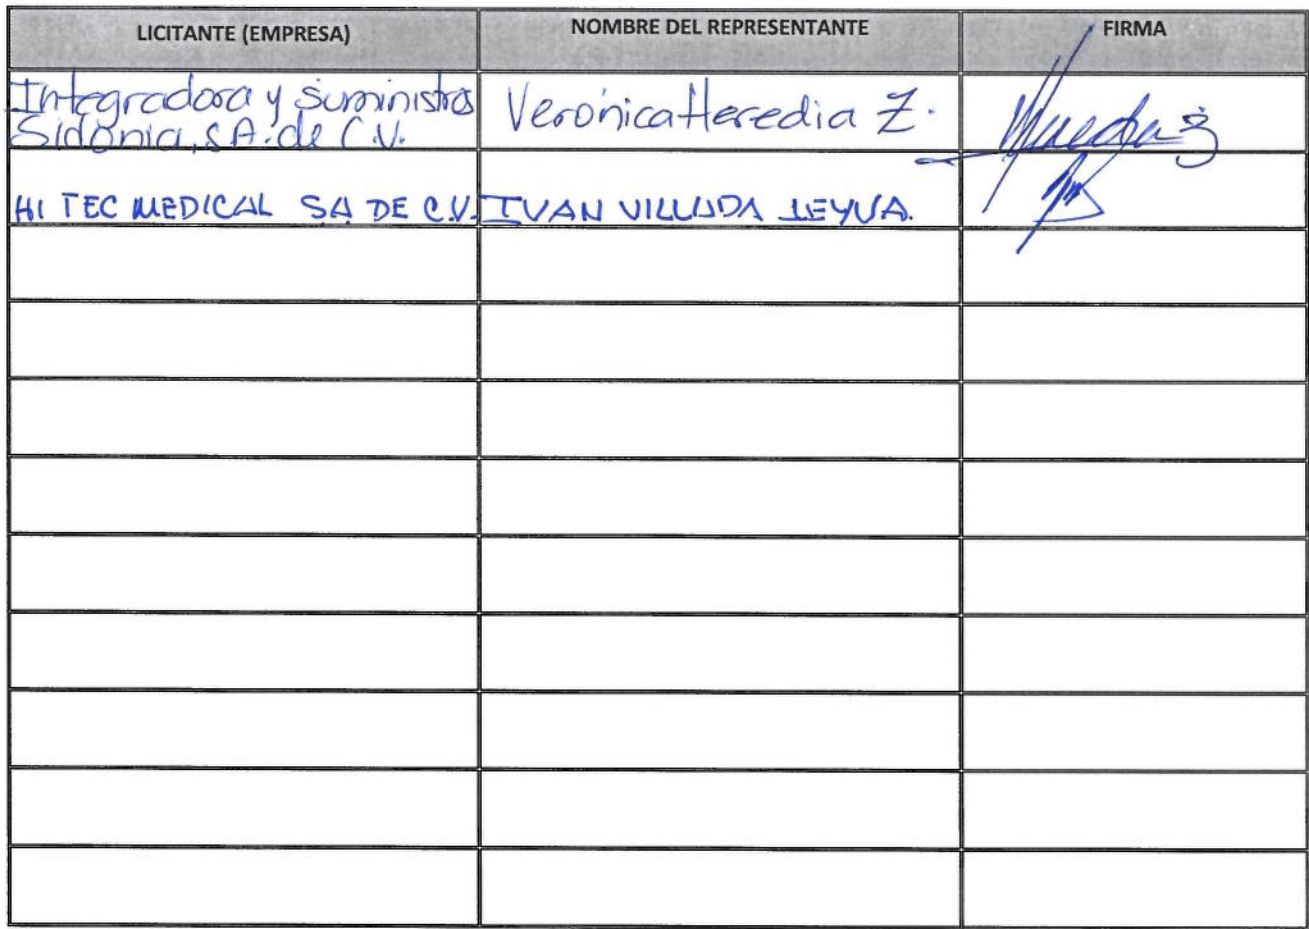 LICITANTE (EMPRESA) NOMBRE DEL REPRESENTANTE FIRMA
Integradora y Suministros
Sidonia, S.A. de C.V.
Verónica Heredia Z.
HI TEC MEDICAL SA DE C.V. IVAN VILLADA LEYVA.